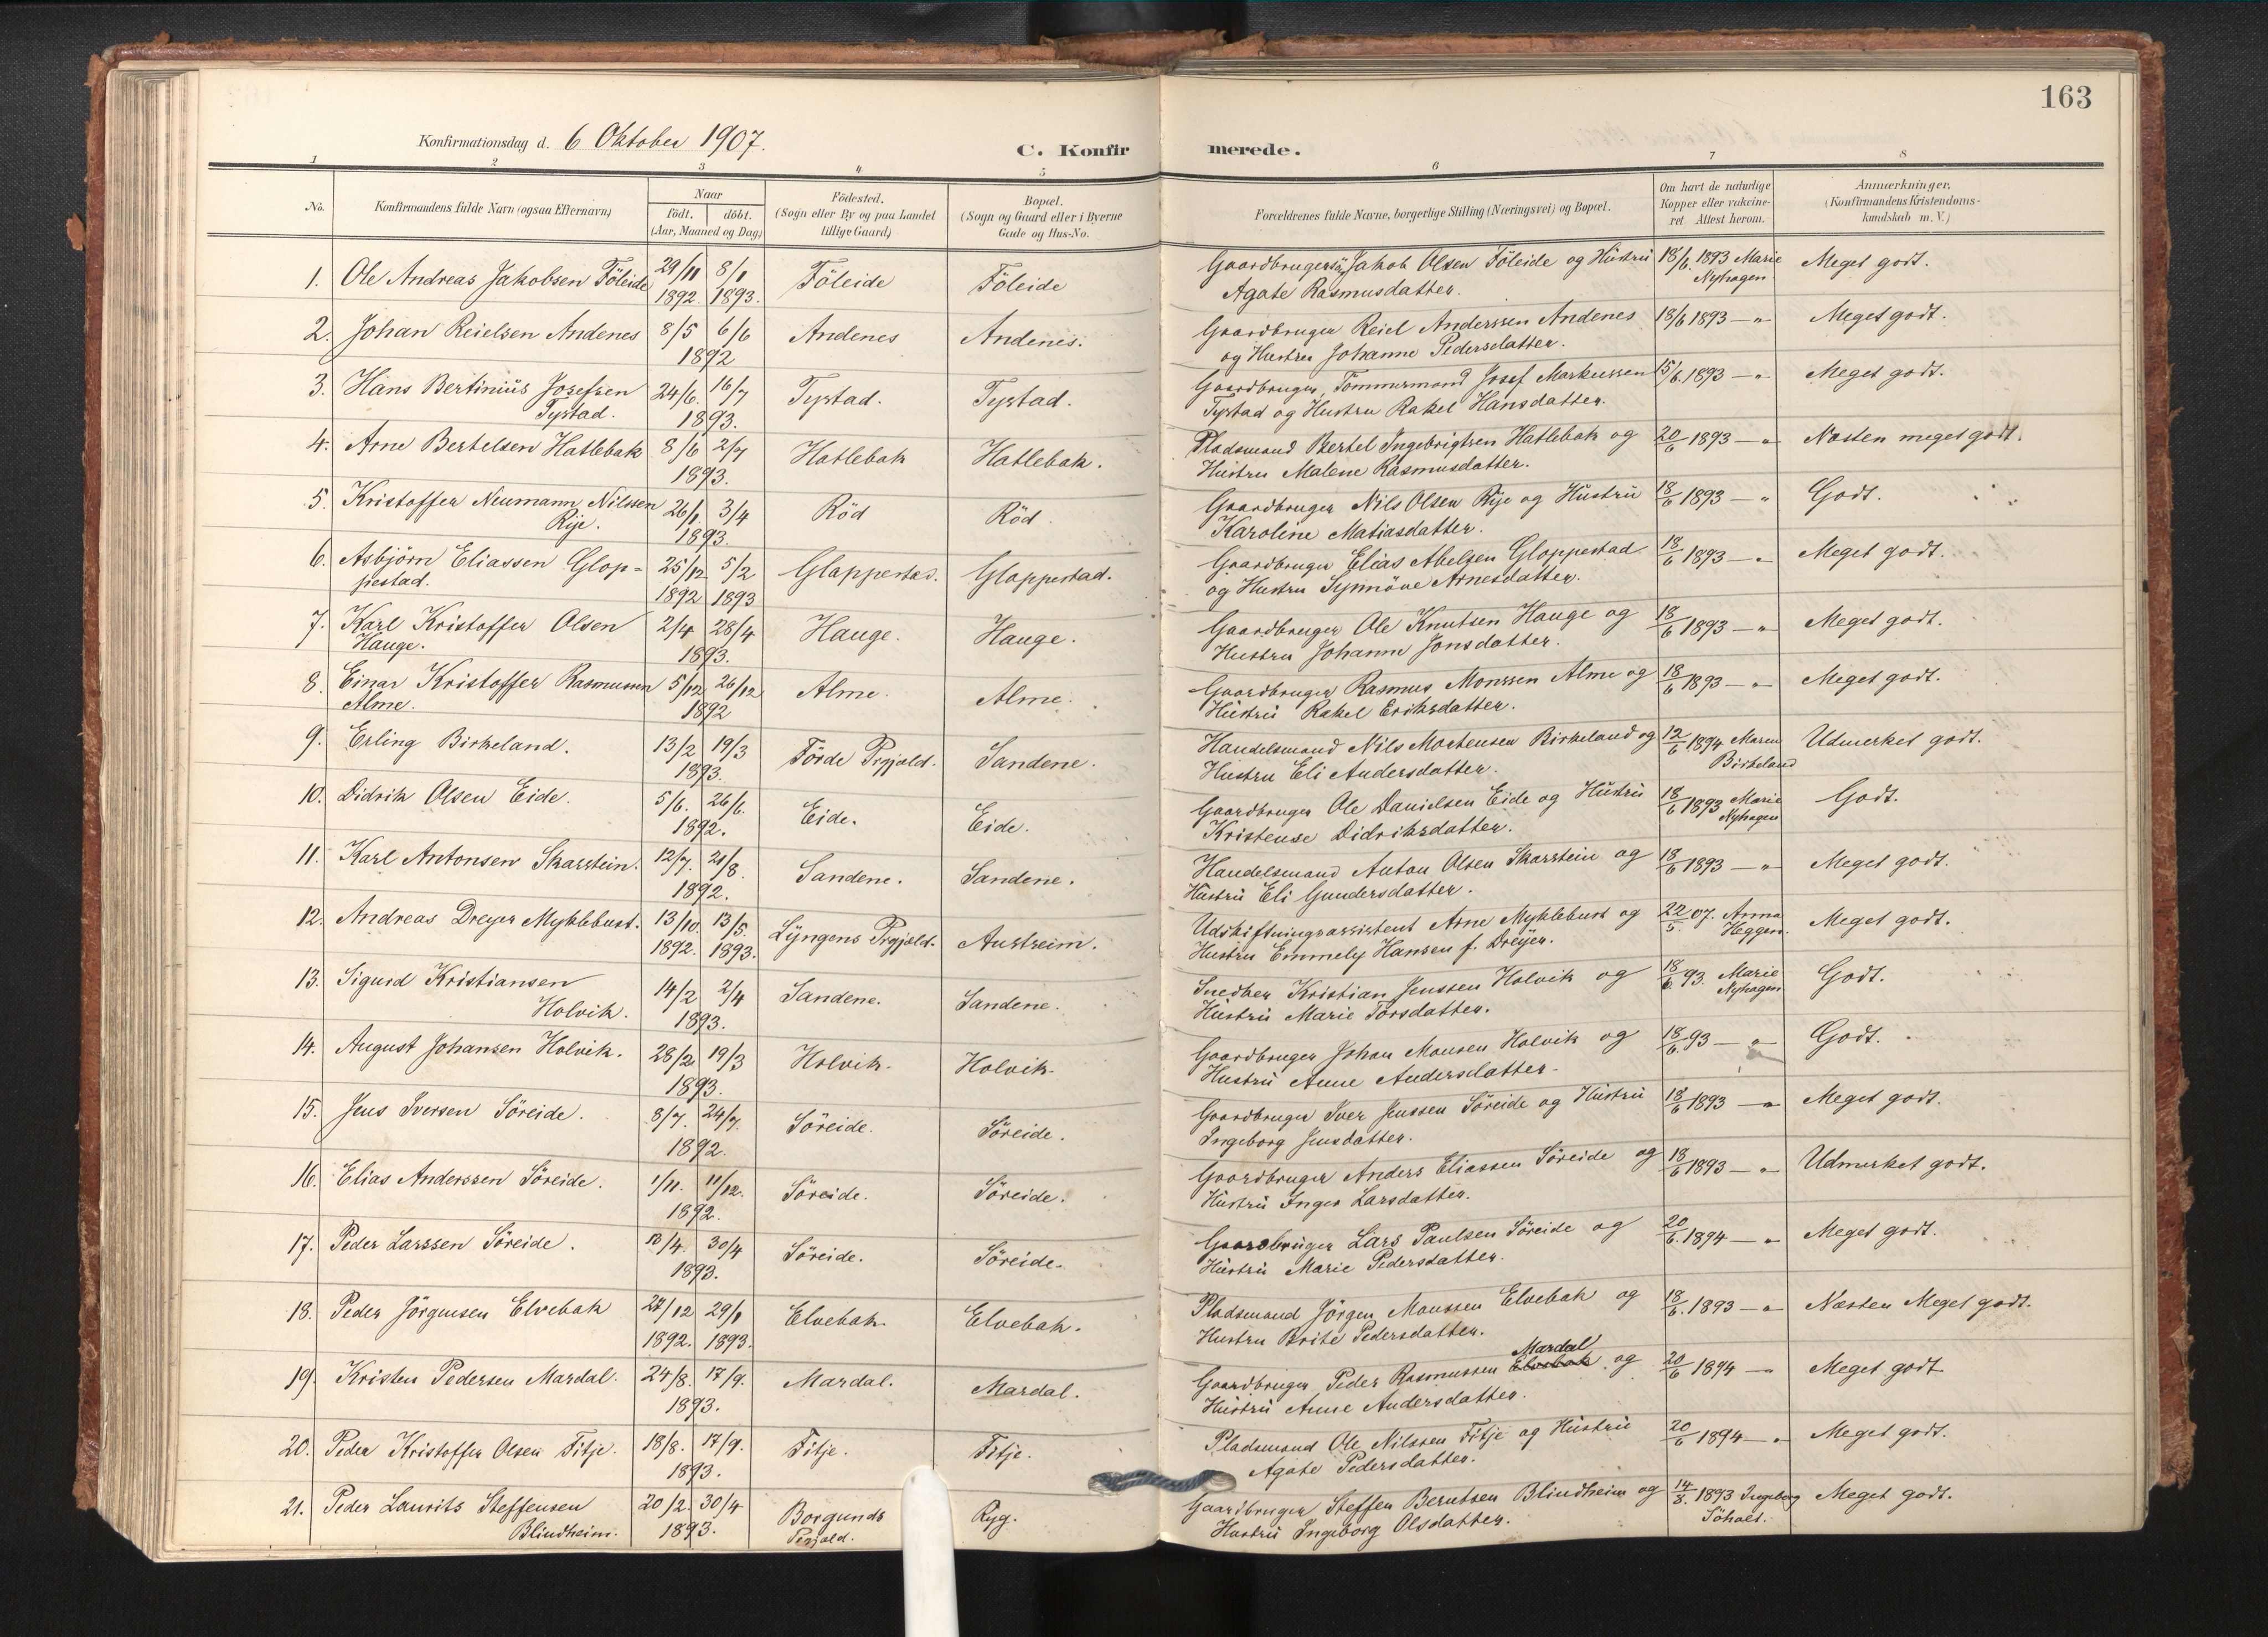 163
Konfirmationsdag d. 6 Oktober 1907.
C. Konfirmerede.
1 2 3 4 5 6 7 8
No.
Konfirmandens fulde Navn (ogsaa Efternavn)
Naar
födt. döbt.
(Aar, Maaned og Dag)
Födested.
(Sogn eller By og paa Landet
tillige Gaard)
Bopæl.
(Sogn og Gaard eller i Byerne
Gade og Hus-No.
Forældrenes fulde Navne, borgerlige Stilling (Næringsvei) og Bopæl.
Om havt de naturlige
Kopper eller vakcine-
ret Attest herom.
Anmærkninger,
(Konfirmandens Kristendoms-
kundskab m. V.)
1. Ole Andreas Jakobsen Föleide 29/11 8/1 Föleide Föleide Gaardbruger Jakob Olsen Föleide og Hustru 18/6 1893 Marie Meget godt.
1892 1893. Agate Rasmusdatter. Nyhagen
2. Johan Reielsen Andenes 8/5 6/6 Andenes Andenes. Gaardbruger Reiel Anderssen Andenes 18/6 1893 — „ Meget godt.
1892 og Hustru Johanne Pedersdatter.
3. Hans Bertinius Josefsen 24/6. 16/7 Tystad. Tystad. Gaardbruger, Tömmermand Josef Markussen 15/6. 1893 — „ Meget godt.
Tystad. 1893. Tystad og Hustru Rakel Hansdatter.
4. Arne Bertelsen Hatlebak 8/6 2/7 Hatlebak Hatlebak. Pladsmand Bertel Ingebrigtsen Hatlebak og 20/6 1893 — „ Næsten meget godt.
1893. Hustru Malene Rasmusdatter.
5. Kristoffer Neumann Nilssen 26/1 3/4 Röd Röd. Gaardbruger Nils Olsen Rije og Hustru 18/6 1893 — „ Godt.
Rije. 1893. Karoline Matiasdatter.
6. Asbjörn Eliassen Glop- 25/12 5/2 Gloppestad. Gloppestad. Gaardbruger Elias Abelsen Gloppestad 18/6 1893 — „ Meget godt.
pestad. 1892 1893 og Hustru Synnöve Arnesdatter.
7. Karl Kristoffer Olsen 2/4 28/4 Hauge. Hauge. Gaardbruger Ole Knutsen Hauge og 18/6 1893 — „ Meget godt.
Hauge. 1893. Hustru Johanne Jonsdatter.
8. Einar Kristoffer Rasmussen 5/12 26/12 Alme. Alme. Gaardbruger Rasmus Monssen Alme og 18/6 1893 — „ Meget godt.
Alme. 1892 Hustru Rakel Eriksdatter.
9. Erling Birkeland. 13/2 19/3 Förde Prgjæld. Sandene. Handelsmand Nils Mortensen Birkeland og 12/6 1894 Maren Udmerket godt.
1893. Hustru Eli Andersdatter. Birkeland
10. Didrik Olsen Eide. 5/6. 26/6. Eide. Eide. Gaardbruger Ole Danielsen Eide og Hustru 18/6 1893 Marie Godt.
1892. Kristense Didriksdatter. Nyhagen
11. Karl Antonsen Skarstein. 12/7. 21/8. Sandene. Sandene. Handelsmand Anton Olsen Skarstein og 18/6 1893 — „ Meget godt.
1892. Hustru Eli Gundersdatter.
12. Andreas Dreyer Myklebust. 13/10. 13/5. Lyngens Prgjæld. Austreim. Udskiftningsassistent Arne Myklebust og 22/5. 07. Anna Meget godt.
1892. 1893. Hustru Emmely Hansen f. Dreyer. Heggen.
13. Sigurd Kristiansen 14/2 2/4 Sandene. Sandene. Snedker Kristian Jenssen Holvik og 18/6. 93. Marie Godt.
Holvik. 1893. Hustru Marie Torsdatter. Nyhagen
14. August Johansen Holvik. 28/2 19/3 Holvik. Holvik. Gaardbruger Johan Monsen Holvik og 18/6. 93 — „ Godt.
1893. Hustru Anne Andersdatter.
15. Jens Iversen Söreide. 8/7. 24/7. Söreide. Söreide. Gaardbruger Iver Jenssen Söreide og Hustru 18/6 1893 — „ Meget godt.
1892. Ingeborg Jensdatter.
16. Elias Anderssen Söreide. 1/11. 11/12. Söreide. Söreide. Gaardbruger Anders Eliassen Söreide og 18/6 1893 — „ Udmerket godt.
1892. Hustru Inger Larsdatter.
17. Peder Larssen Söreide. 10/4. 30/4 Söreide. Söreide. Gaardbruger Lars Paulsen Söreide og 20/6. 1894 — „ Meget godt.
1893. Hustru Marie Pedersdatter.
18. Peder Jörgensen Elvebak 27/12 29/1 Elvebak. Elvebak. Pladsmand Jörgen Monssen Elvebak og 18/6. 1893 — „ Næsten Meget godt.
1892. 1893. Hustru Brite Pedersdatter.
Mardal
19. Kristen Pedersen Mardal. 24/8. 17/9. Mardal. Mardal. Gaardbruger Peder Rasmussen Elvebak og 20/6 1894 — „ Meget godt
1893. Hustru Anne Andersdatter.
20. Peder Kristoffer Olsen Fitje. 18/8. 17/9. Fitje. Fitje. Pladsmand Ole Nilssen Fitje og Hustru 20/6 1894 — „ Meget godt.
1893. Agate Pedersdatter.
21. Peder Laurits Steffensen 20/2. 30/4 Borgunds Ryg. Gaardbruger Steffen Berntsen Blindheim og 14/8. 1893 Ingeborg Meget godt.
Blindheim. 1893. Prgjæld. Hustru Ingeborg Olsdatter. Söholt.